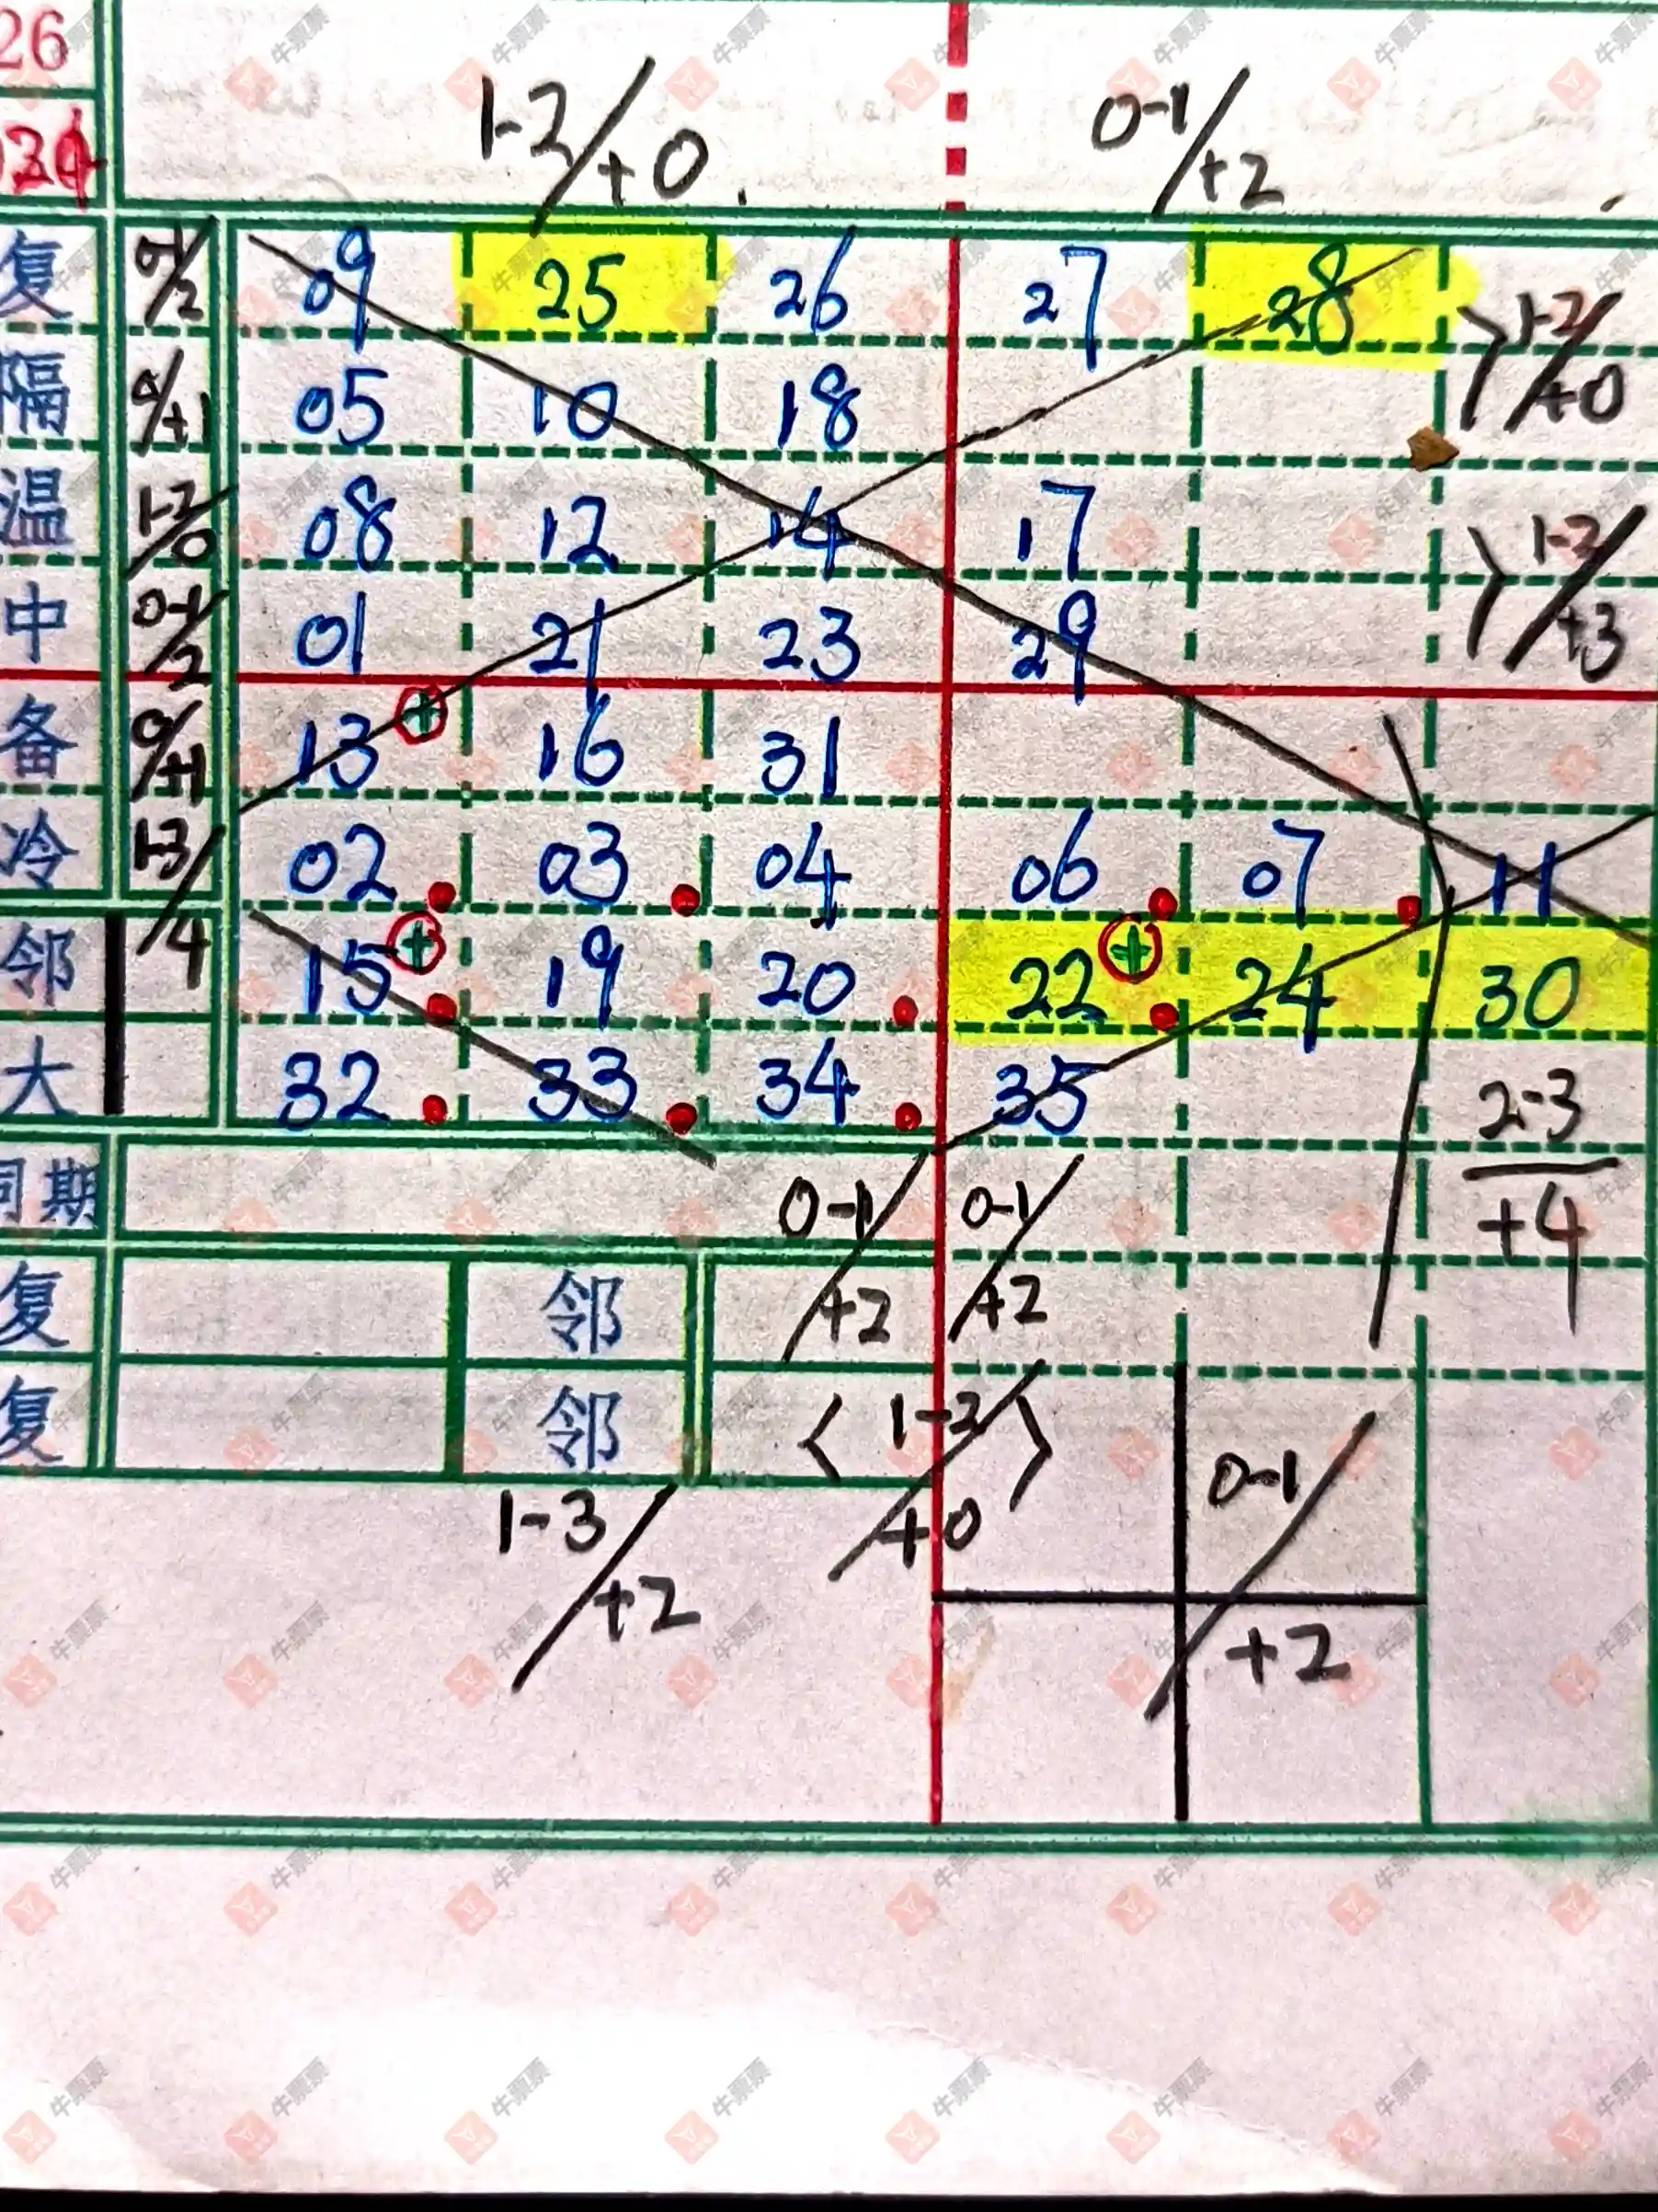 26
1-2/+0.
0-1/+2
复 0-1/2 09 25 26 27 28 1-2/+0
隔 0/+1 05 10 18
温 1-2/0 08 12 14 17 1-2/+3
中 0-1/2 01 21 23 29
备 0/+1 13 + 16 31
冷 1-3/4 02 03 04 06 07 11
邻 15 + 19 20 22 + 24 30
大 32 33 34 35 2-3/+4
同期 0-1/+2 0-1/+2
复 邻
复 邻 〈1-2/+0〉 0-1/+2
1-3/+2
牛票票